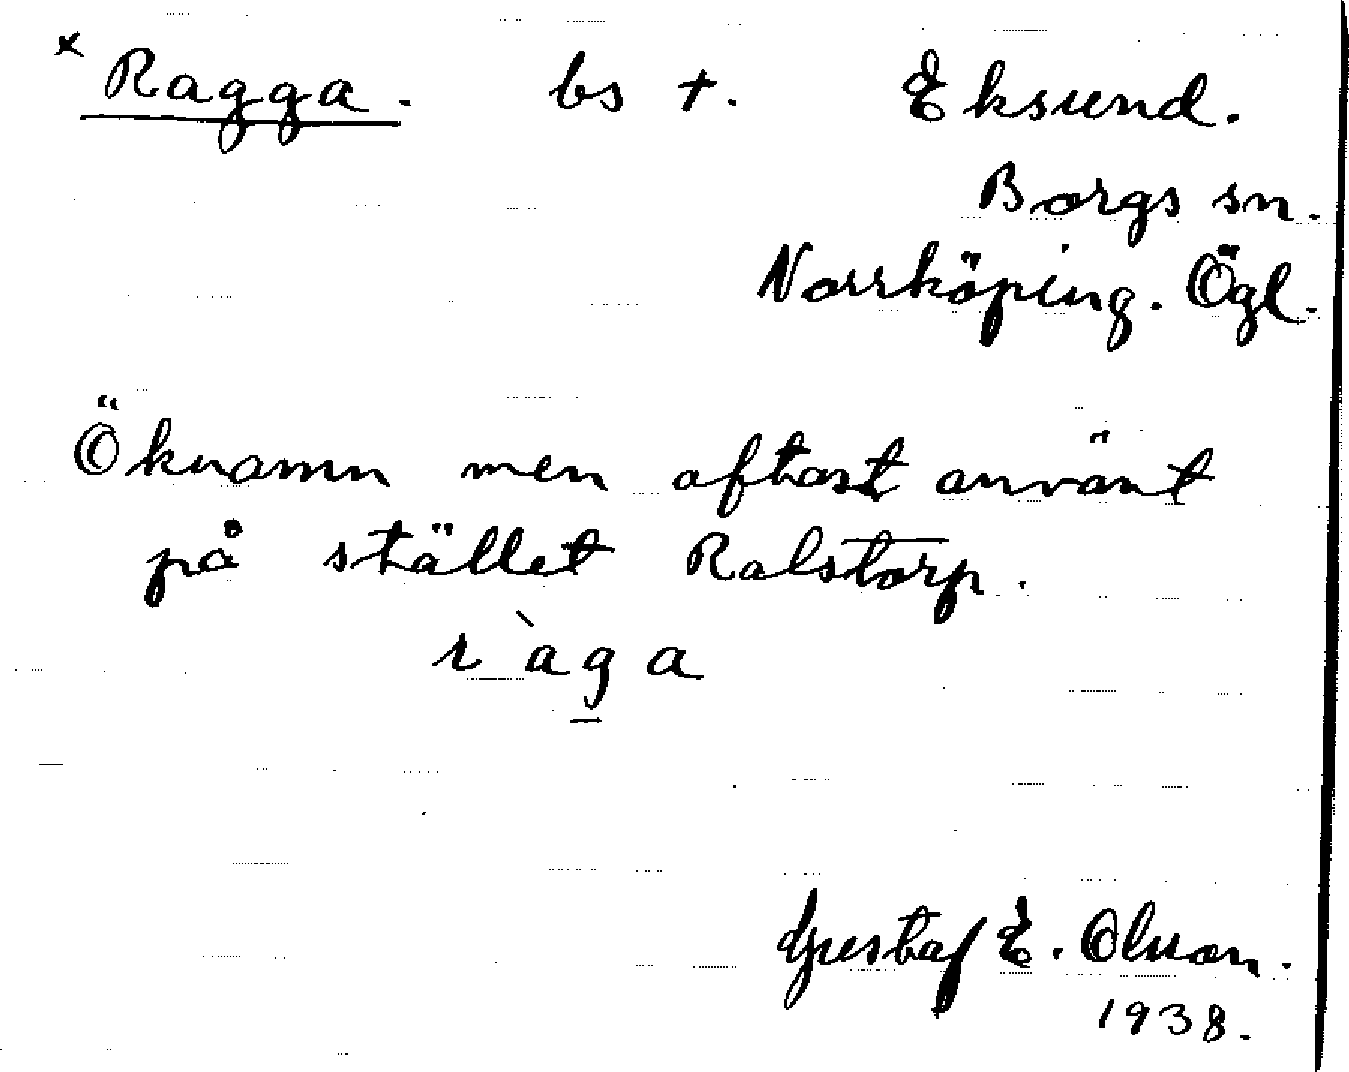 x Ragga. bs +. Eksund.
Borgs sn.
Norrköping. Ögl.
Öknamn men oftast använt
på stället Ralstorp.
r`aga
Gustaf E. Olsson.
1938.